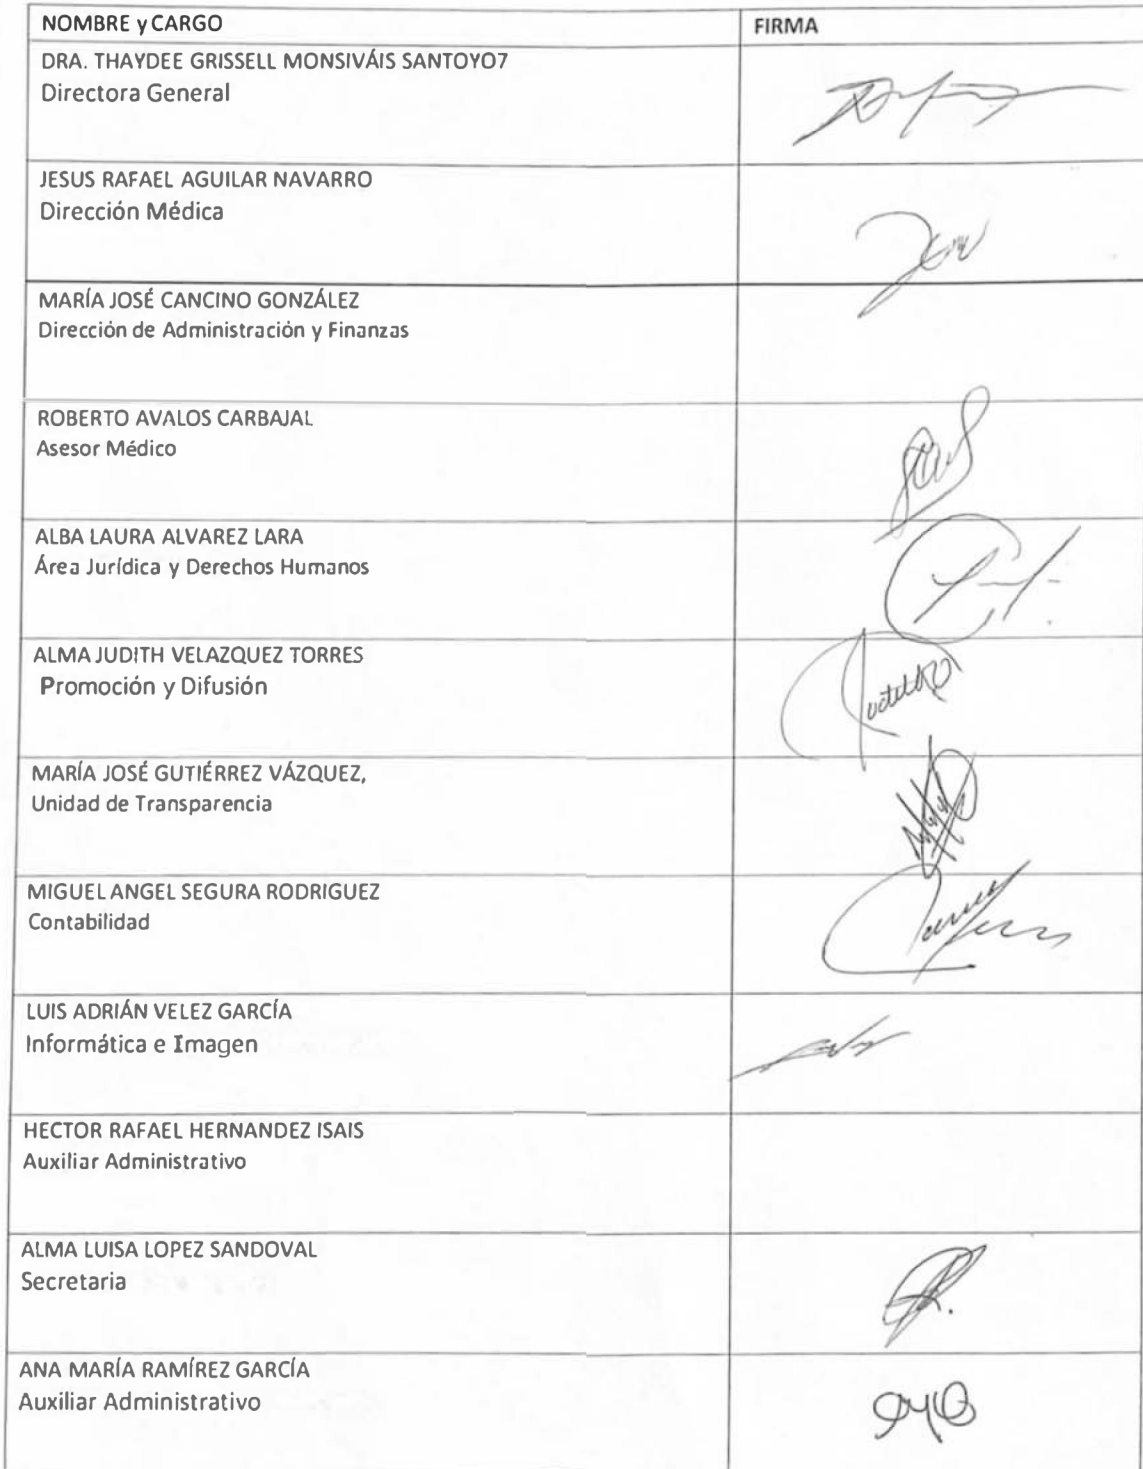 NOMBRE y CARGO
FIRMA
DRA. THAYDEE GRISSELL MONSIVÁIS SANTOYO7
Directora General
JESUS RAFAEL AGUILAR NAVARRO
Dirección Médica
MARÍA JOSÉ CANCINO GONZÁLEZ
Dirección de Administración y Finanzas
ROBERTO AVALOS CARBAJAL
Asesor Médico
ALBA LAURA ALVAREZ LARA
Área Jurídica y Derechos Humanos
ALMA JUDITH VELAZQUEZ TORRES
Promoción y Difusión
MARÍA JOSÉ GUTIÉRREZ VÁZQUEZ,
Unidad de Transparencia
MIGUEL ANGEL SEGURA RODRIGUEZ
Contabilidad
LUIS ADRIÁN VELEZ GARCÍA
Informática e Imagen
HECTOR RAFAEL HERNANDEZ ISAIS
Auxiliar Administrativo
ALMA LUISA LOPEZ SANDOVAL
Secretaria
ANA MARÍA RAMÍREZ GARCÍA
Auxiliar Administrativo